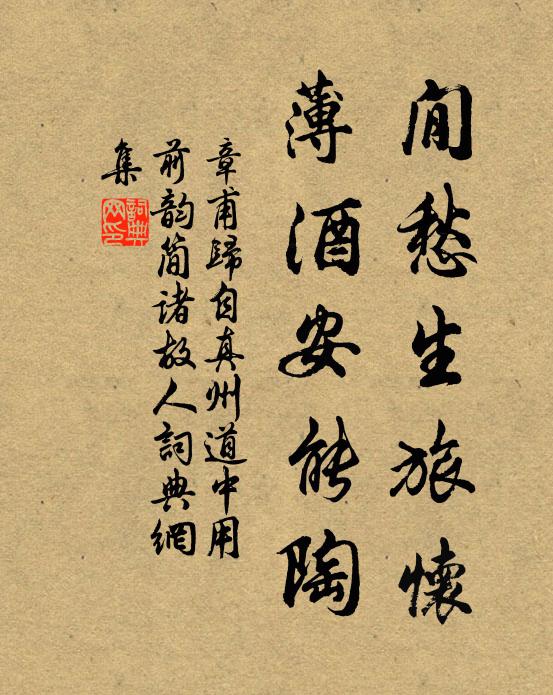 閒愁生旅懷
薄酒安能陶
章甫歸自真州道中用
前韵簡诸故人詞典網
集
詞典網印